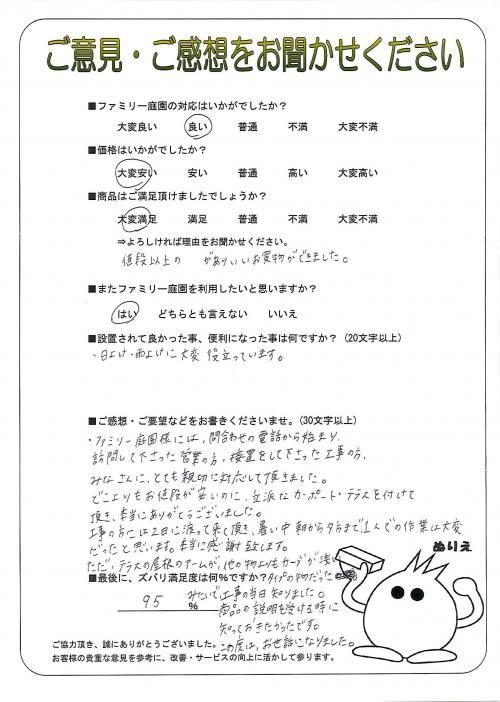 ご意見・ご感想をお聞かせください
■ファミリー庭園の対応はいかがでしたか？
大変良い 良い 普通 不満 大変不満
■価格はいかがでしたか？
大変安い 安い 普通 高い 大変高い
■商品はご満足頂けましたでしょうか？
大変満足 満足 普通 不満 大変不満
⇒よろしければ理由をお聞かせください。
値段以上の がありいいお買物ができました。
■またファミリー庭園を利用したいと思いますか？
はい どちらとも言えない いいえ
■設置されて良かった事、便利になった事は何ですか？（20文字以上）
・日よけ・雨よけに大変 役立っています。
■ご感想・ご要望などをお書きくださいませ。（30文字以上）
・ファミリー庭園様には、問合わせの電話から始まり、
訪問して下さった営業の方、設置をして下さった工事の方、
みなさんに、とても親切に対応して頂きました。
どこよりもお値段が安いのに、立派なカーポート・テラスを付けて
頂き、本当にありがとうございました。
工事の方には2日に渡って来て頂き、暑い中 朝から夕方まで1人での作業は大変
だったと思います。本当に感謝致します。
ただ、テラスの屋根のアームが、他の物よりもカーブが浅い
タイプの物だった
みたいで工事の当日知りました。
商品の説明を受ける時に
知っておきたかったです。
この度は、お世話になりました。
■最後に、ズバリ満足度は何％ですか？
95 ％
ぬりえ
ご協力頂き、誠にありがとうございました。
お客様の貴重な意見を参考に、改善・サービスの向上に活かして参ります。